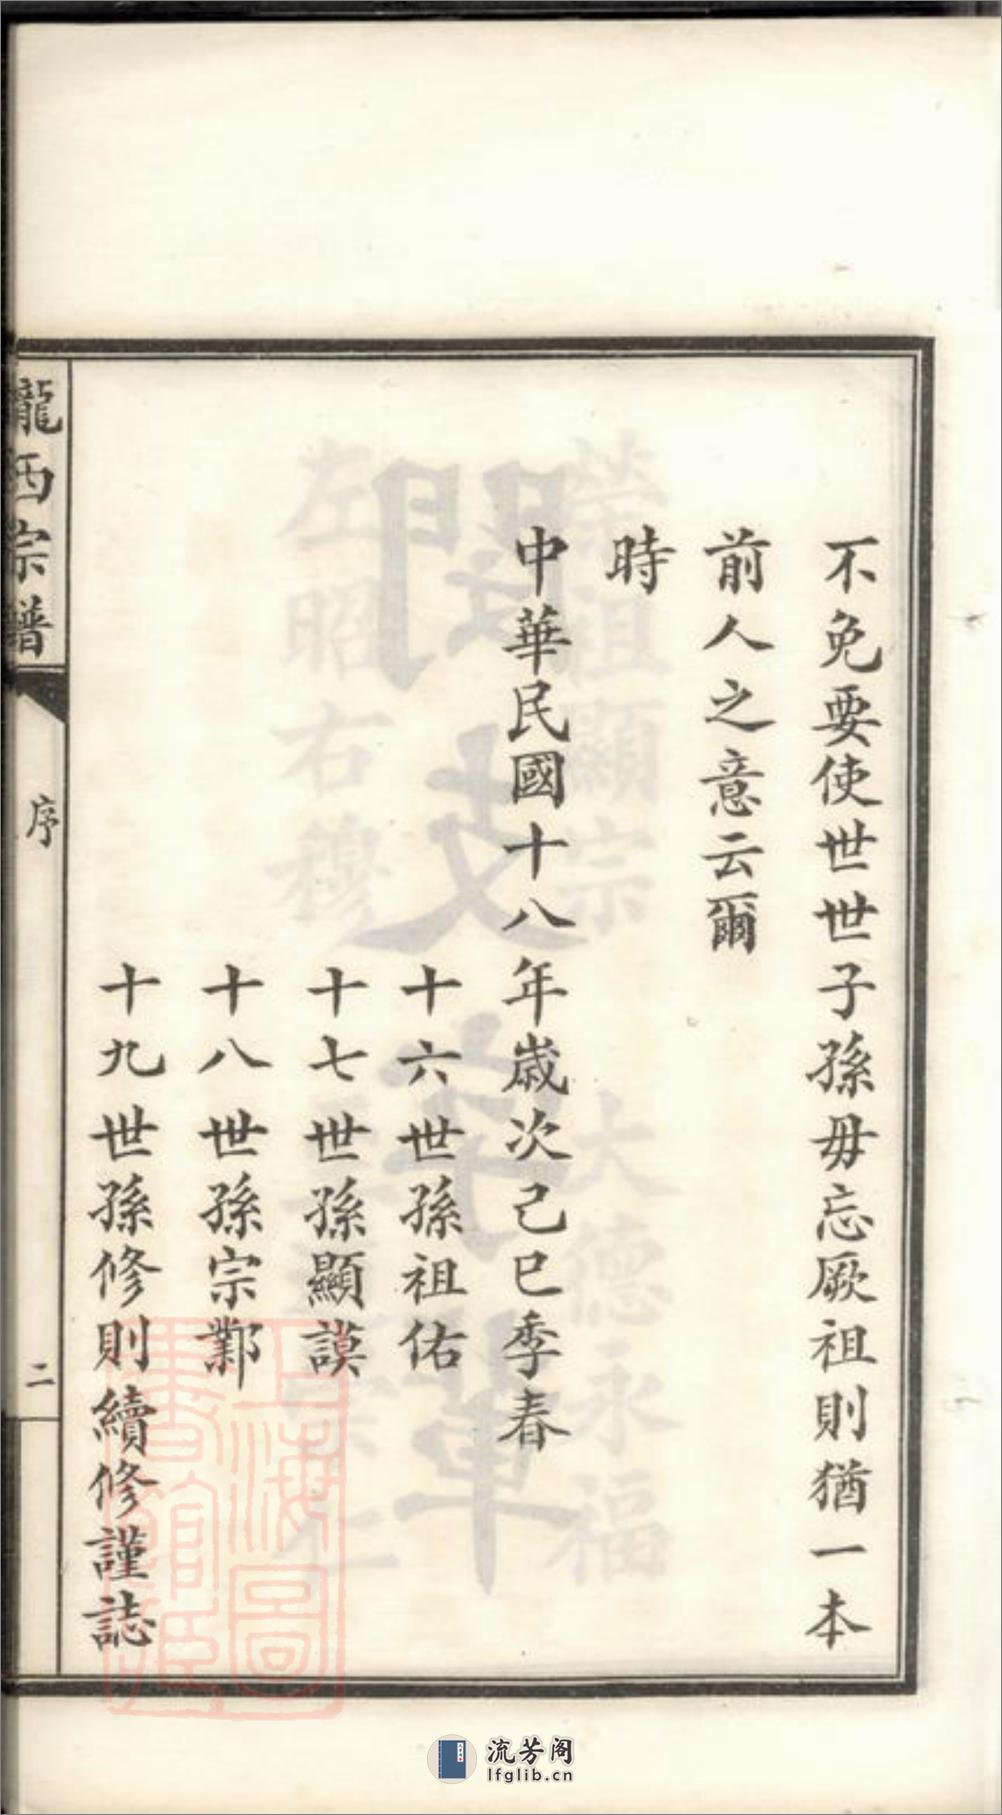 不免要使世世子孫毋忘厥祖則猶一本
前人之意云爾
時
中華民國十八年歲次己巳季春
十六世孫祖佑
十七世孫顯謨
十八世孫宗鄴
十九世孫修則續修謹誌
隴西宗譜
序
二
上海圖書館
流芳阁
lfglib.cn